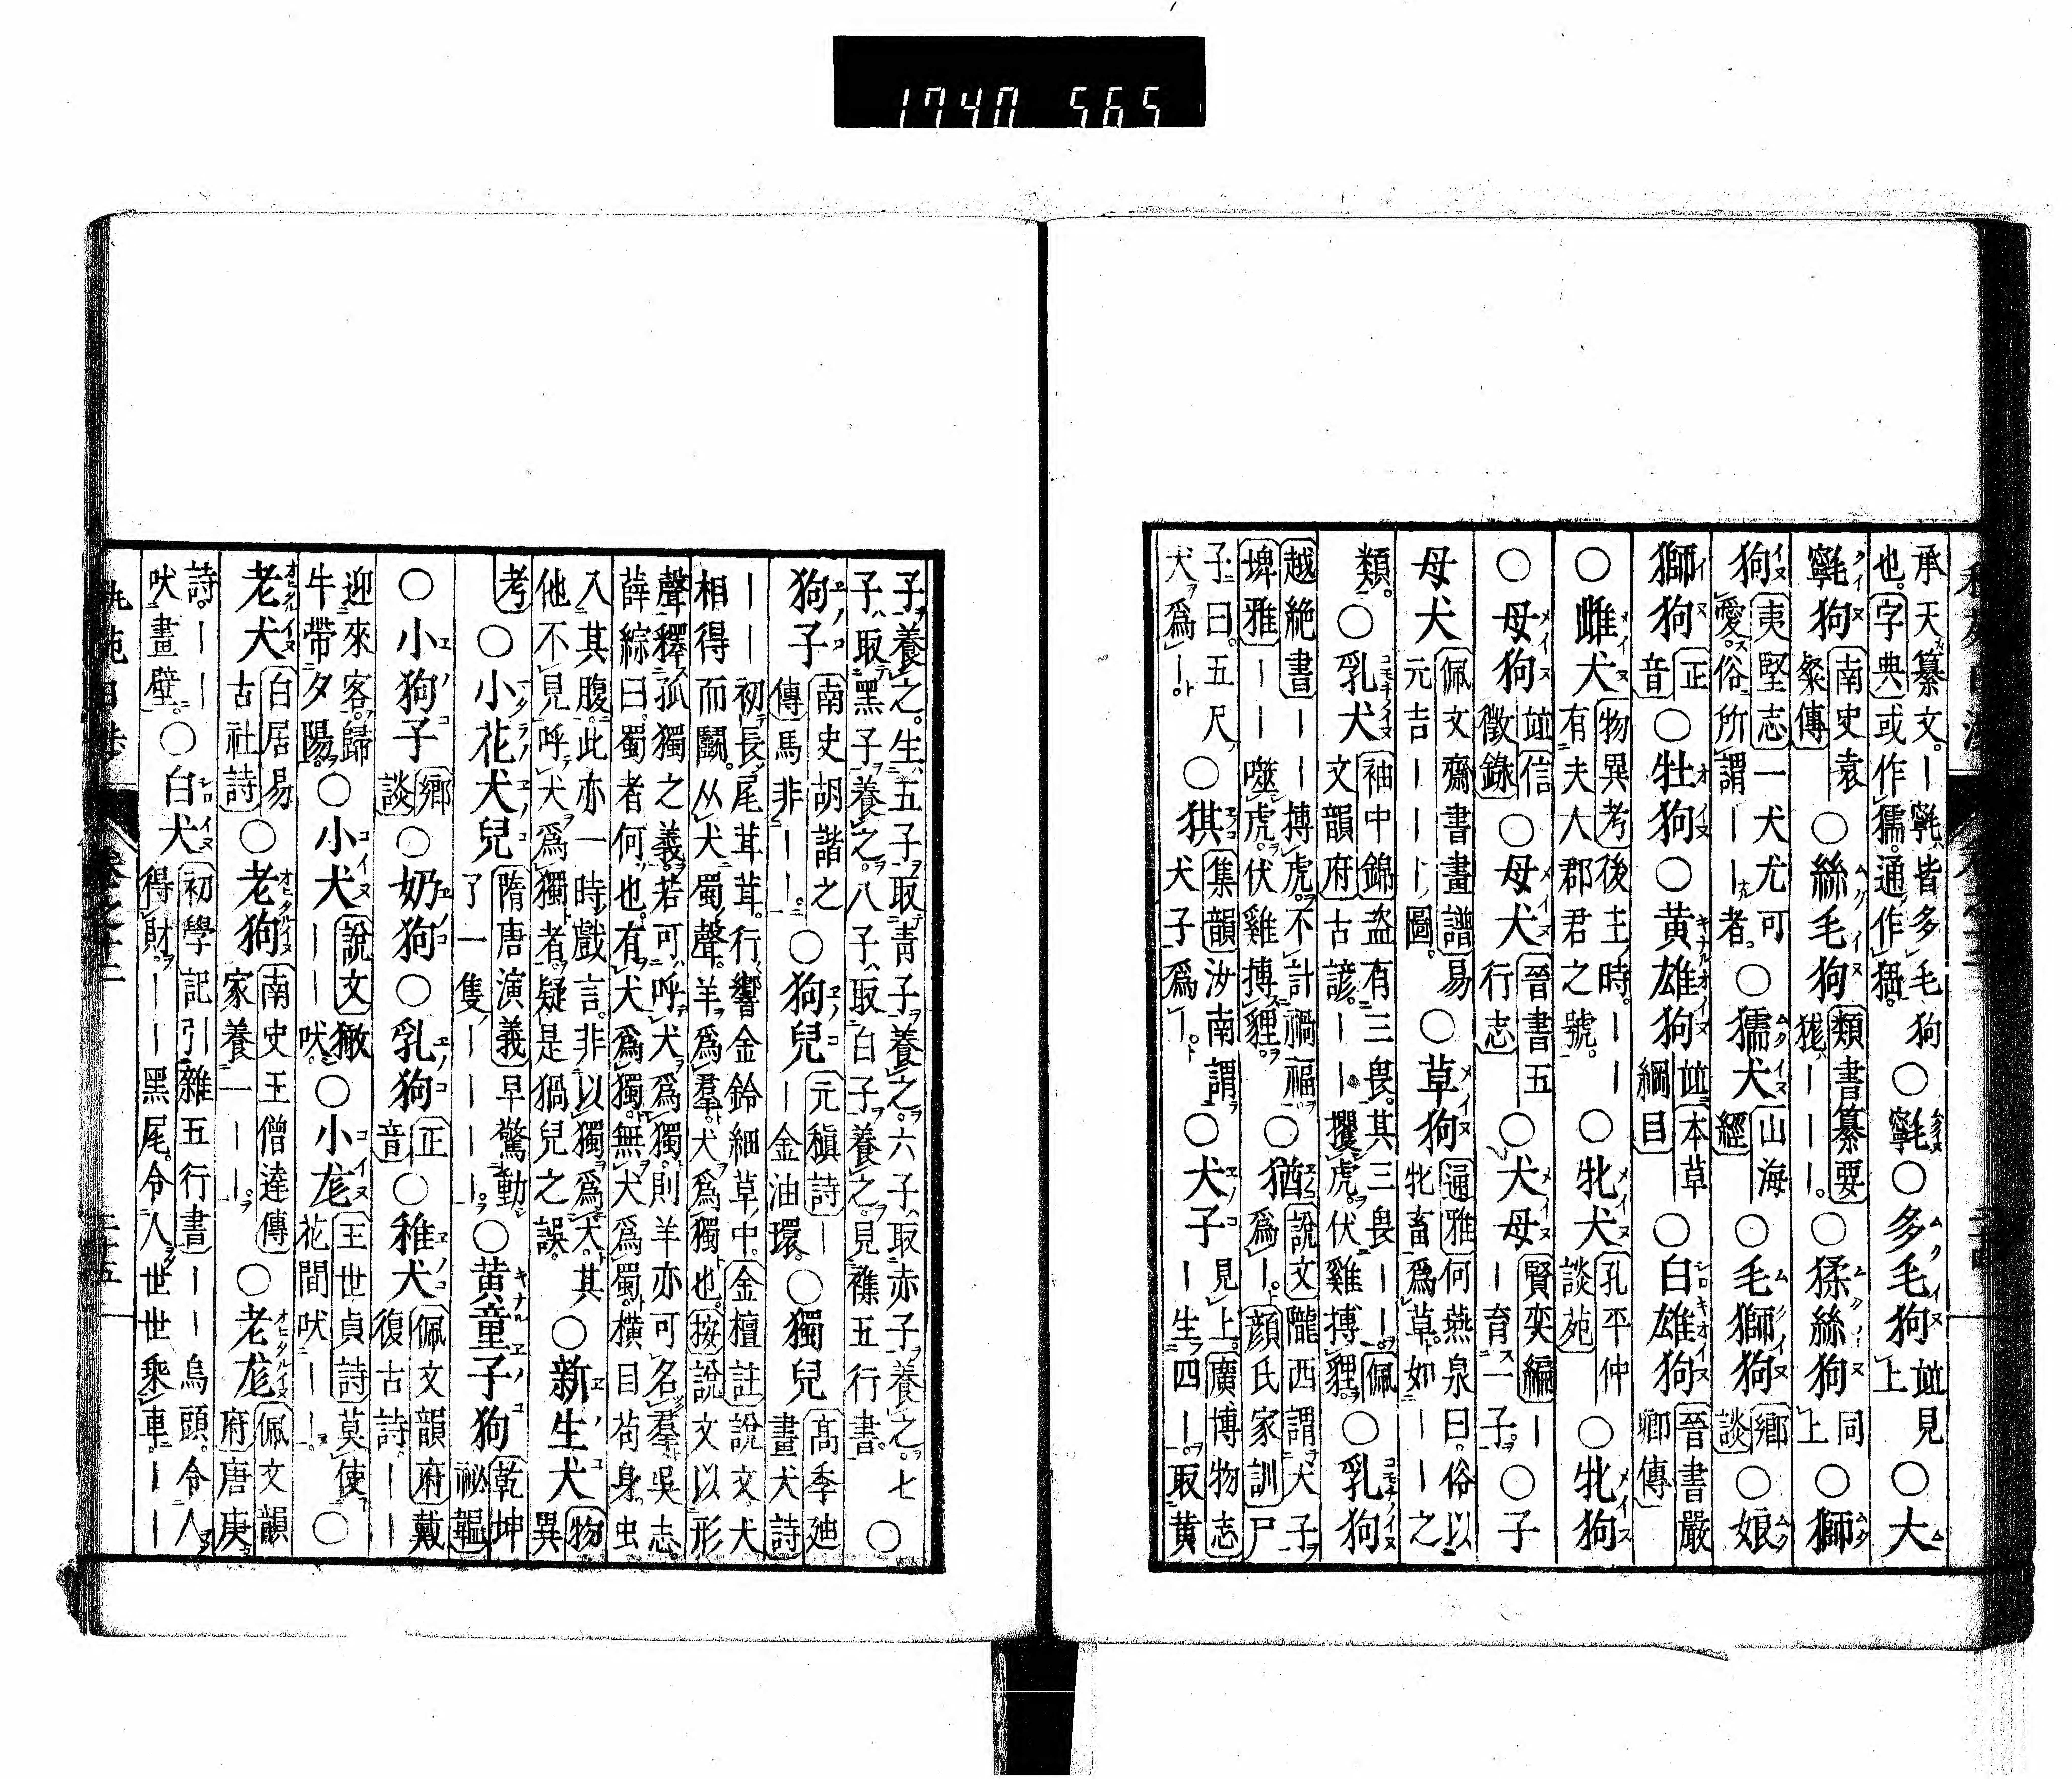 1740 565
承天纂文。｜氋、皆多毛狗○氋○多毛狗並見○大
也。字典或作獳。通作猱。上
氋狗南史袁粲傳○絲毛狗類書纂要狵｜｜｜。○猱絲狗同上○獅
狗夷堅志一犬尤可愛。俗所謂｜｜者。○獳犬山海經○毛獅狗鄉談○娘
獅狗正音○牡狗○黃雄狗並本草綱目○白雄狗晉書嚴卿傳
○雌犬物異考後主時。｜｜有夫人郡君之號。○牝犬孔平仲談苑○牝狗
○母狗並信徵錄○母犬晉書五行志○犬母賢奕編｜｜育一子。○子
母犬佩文齋書畫譜易元吉｜｜｜圖。○草狗通雅何燕泉曰。俗以牝畜爲草。如｜｜之
類。○乳犬袖中錦盜有三畏。其三畏｜｜。佩文韻府古諺。｜｜攫虎。伏雞搏貍。○乳狗
越絕書｜｜搏虎。不計禍福。○猶說文隴西謂犬子
埤雅｜｜噬虎。伏雞搏貍。爲｜。顏氏家訓尸
子曰。五尺○猉集韻汝南謂犬子爲｜。○犬子見上。廣博物志
犬爲｜。｜生四｜。取黃
子養之。生五子取靑子養之。六子、取赤子養之。七
子、取黑子養之。八子、取白子養之。見襍五行書。○
狗子南史胡諧之傳馬非｜｜。○狗兒元稹詩｜｜金油環。○獨兒高季迪畫犬詩
｜｜初長尾茸茸。行響金鈴細草中。金壇註說文。犬
相得而鬬。从犬蜀聲。羊爲羣。犬爲獨也。按說文以形
聲釋孤獨之義。若可呼犬爲獨。則羊亦可名羣。吳志。
薛綜曰。蜀者何也。有犬爲獨。無犬爲蜀。橫目茍身。虫
入其腹。此亦一時戲言。非以獨爲犬。其○新生犬物異
他不見呼犬爲獨者。疑是猧兒之誤。
考○小花犬兒隋唐演義早驚動了一隻｜｜｜｜。○黃童子狗乾坤祕韞
○小狗子鄉談○奶狗○乳狗正音○稚犬佩文韻府戴復古詩。｜｜
迎來客。歸牛帶夕陽。○小犬說文獥｜｜吠。○小尨王世貞詩莫使花間吠｜｜。○
老犬白居易古社詩○老狗南史王僧達傳家養一｜｜。○老尨佩文韻府唐庚
詩。｜｜吠畫壁。○白犬初學記引雜五行書｜｜烏頭。令人得財。｜｜黑尾。令人世世乘車。｜｜
卷之十二